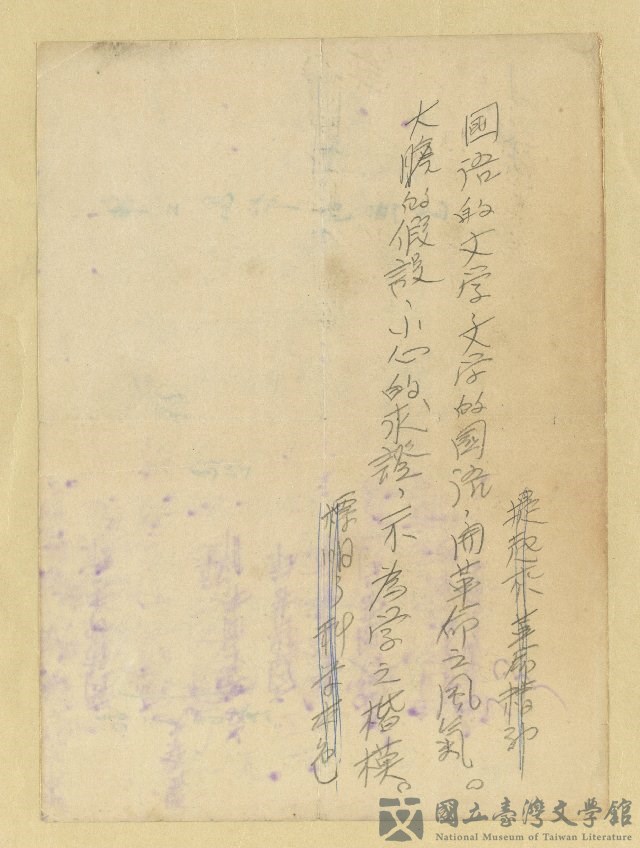 國语的文学文学的國语，開革命之風氣。
大膽的假設，小心的求證，示為学之楷模。
國立臺灣文學館
National Museum of Taiwan Literature